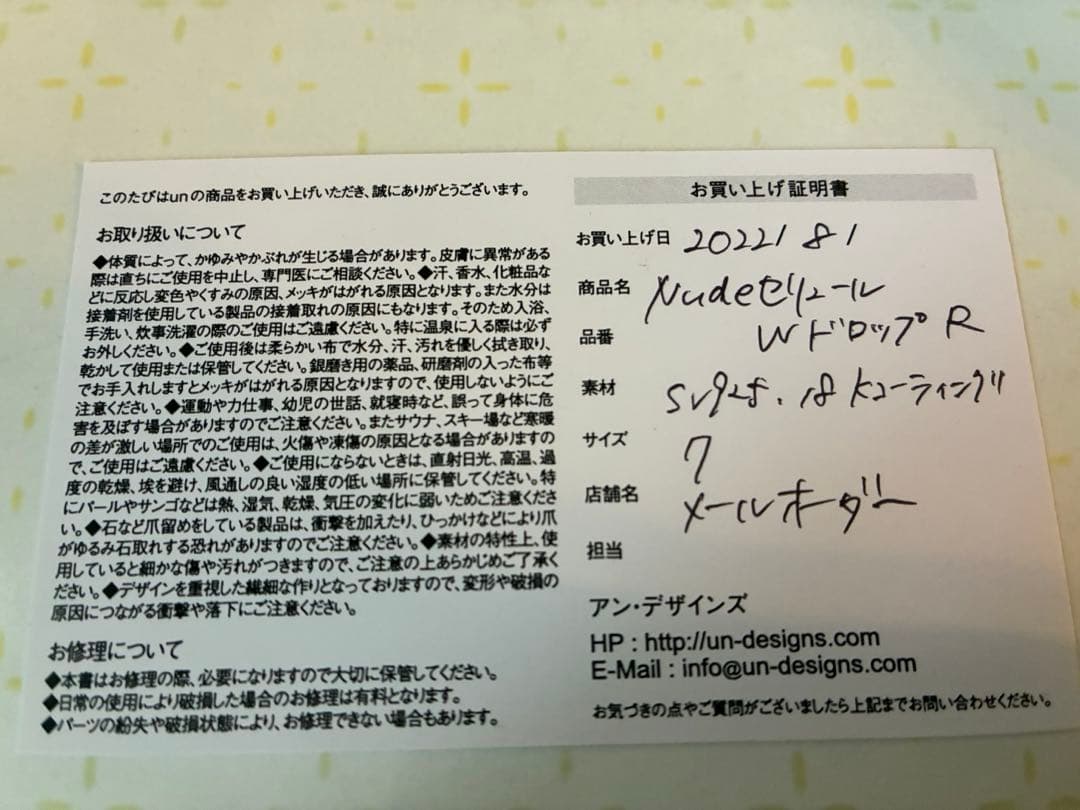 このたびはunの商品をお買い上げいただき、誠にありがとうございます。
お取り扱いについて
◆体質によって、かゆみやかぶれが生じる場合があります。皮膚に異常がある
際は直ちにご使用を中止し、専門医にご相談ください。◆汗、香水、化粧品な
どに反応し変色やくすみの原因、メッキがはがれる原因となります。また水分は
接着剤を使用している製品の接着取れの原因にもなります。そのため入浴、
手洗い、炊事洗濯の際のご使用はご遠慮ください。特に温泉に入る際は必ず
お外しください。◆ご使用後は柔らかい布で水分、汗、汚れを優しく拭き取り、
乾かして使用または保管してください。銀磨き用の薬品、研磨剤の入った布等
でお手入れしますとメッキがはがれる原因となりますので、使用しないようにご
注意ください。◆運動や力仕事、幼児の世話、就寝時など、誤って身体に危
害を及ぼす場合がありますのでご注意ください。またサウナ、スキー場など寒暖
の差が激しい場所でのご使用は、火傷や凍傷の原因となる場合がありますの
で、ご使用はご遠慮ください。◆ご使用にならないときは、直射日光、高温、過
度の乾燥、埃を避け、風通しの良い湿度の低い場所に保管してください。特
にパールやサンゴなどは熱、湿気、乾燥、気圧の変化に弱いためご注意くださ
い。◆石など爪留めをしている製品は、衝撃を加えたり、ひっかけなどにより爪
がゆるみ石取れする恐れがありますのでご注意ください。◆素材の特性上、使
用していると細かな傷や汚れがつきますので、ご注意の上あらかじめご了承く
ださい。◆デザインを重視した繊細な作りとなっておりますので、変形や破損の
原因につながる衝撃や落下にご注意ください。
お修理について
◆本書はお修理の際、必要になりますので大切に保管してください。
◆日常の使用により破損した場合のお修理は有料となります。
◆パーツの紛失や破損状態により、お修理できない場合もあります。
お買い上げ証明書
お買い上げ日 2022/8/
商品名 Nudeセリュール
品番 Wドロップ R
素材 SV925、18Kコーティング
サイズ 7
店舗名 メールオーダー
担当
アン・デザインズ
HP : http://un-designs.com
E-Mail : info@un-designs.com
お気づきの点やご質問がございましたら上記までお問い合わせください。